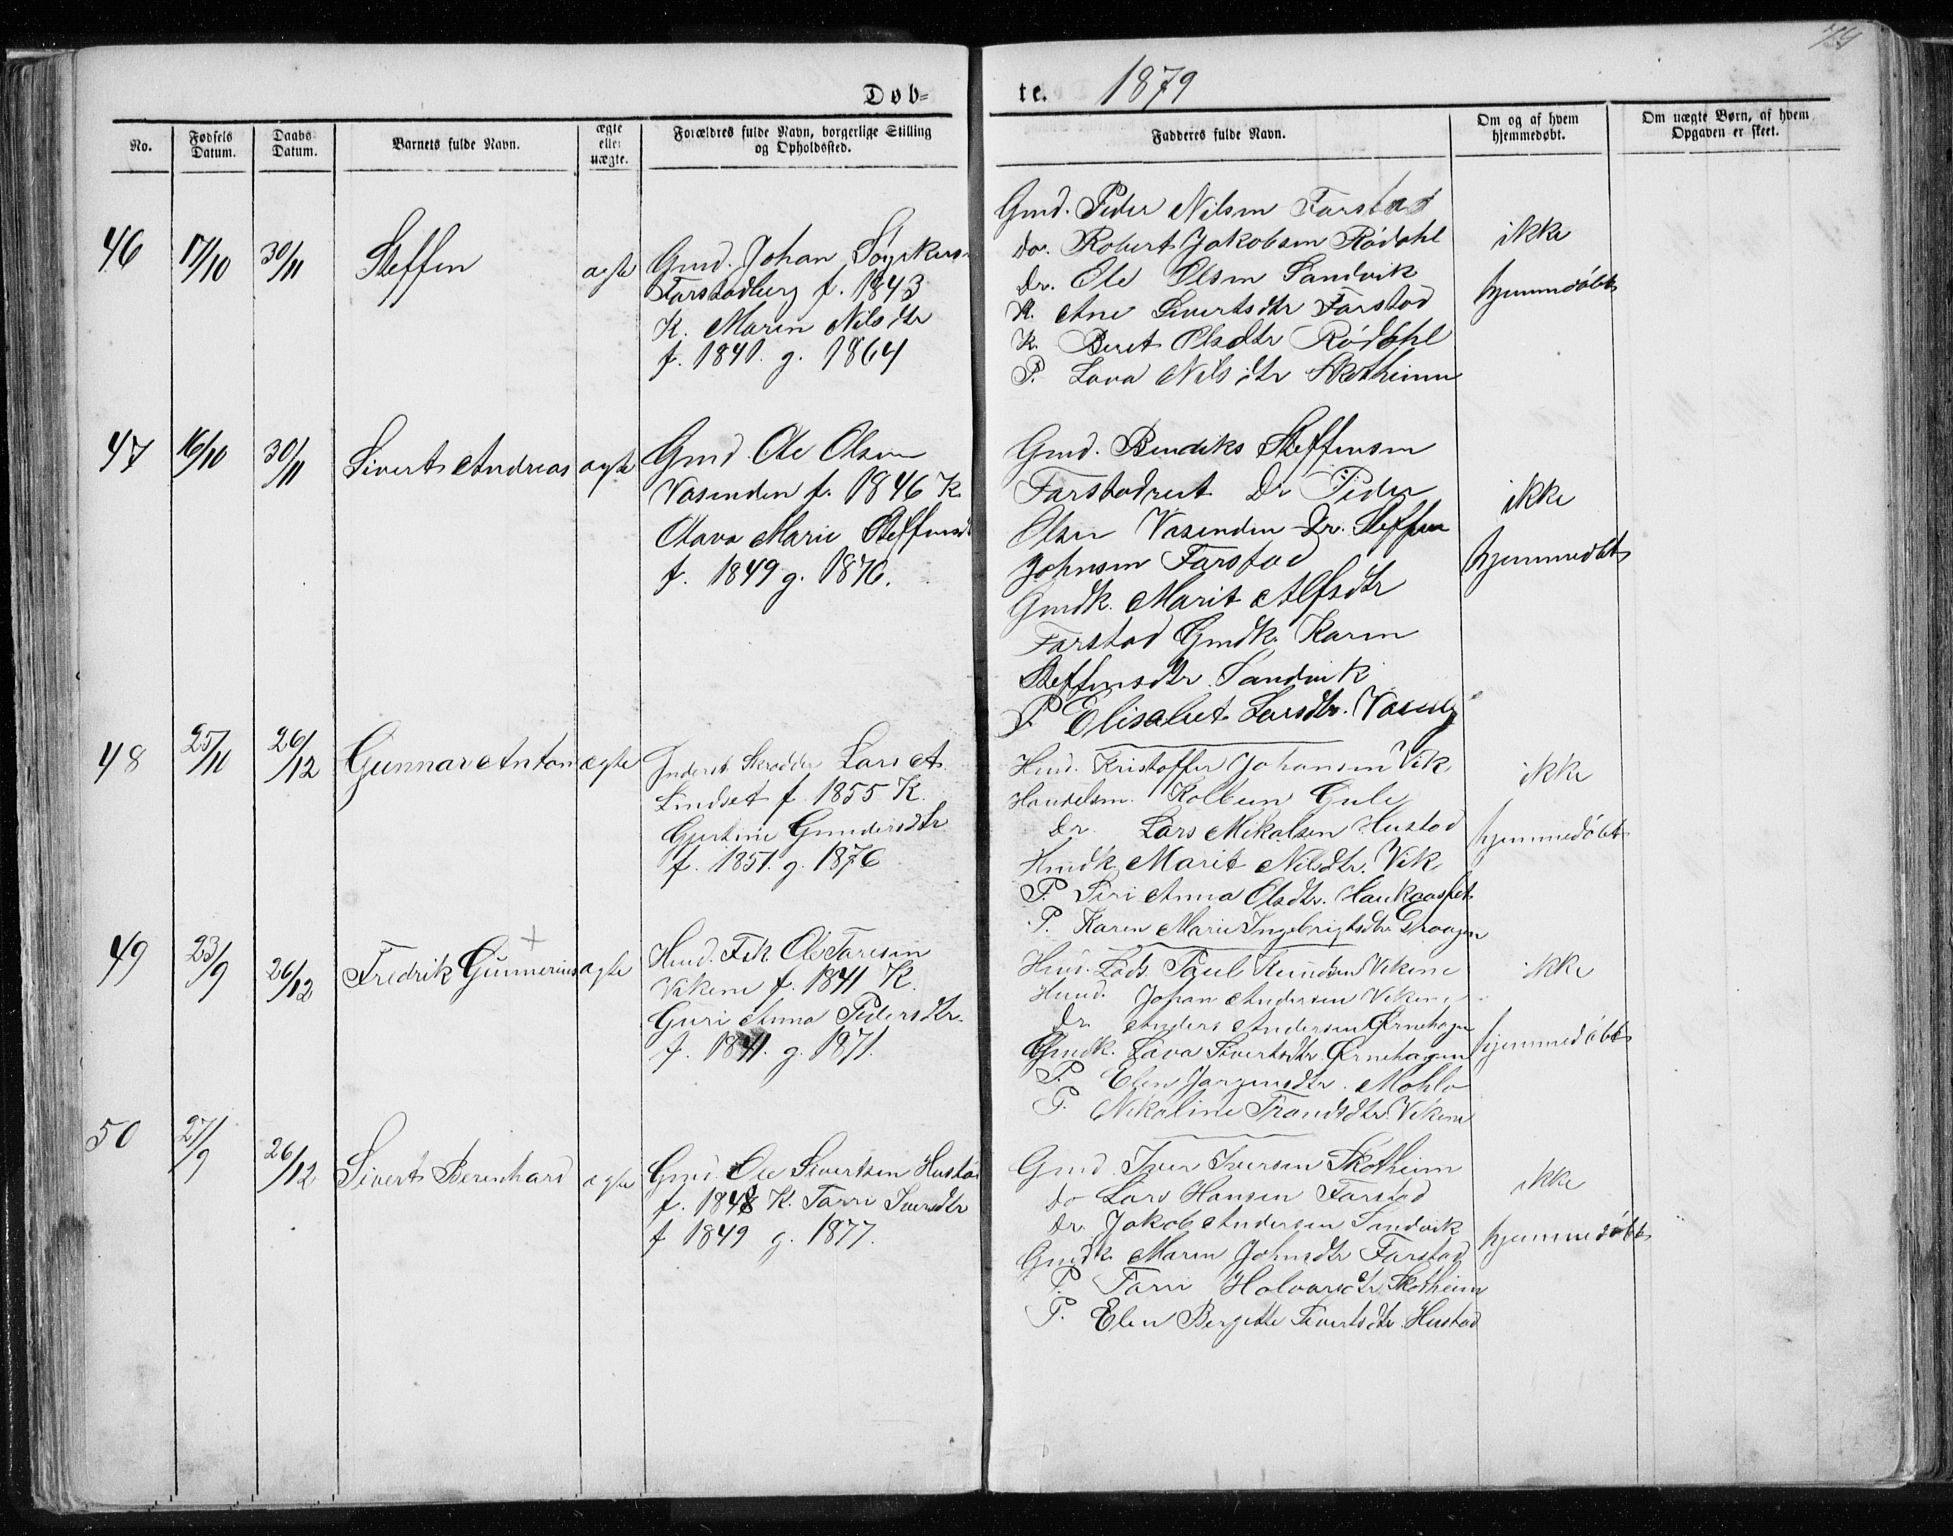 Døb=
te.
1879
No.
Fødsels Datum.
Daabs Datum.
Barnets fulde Navn.
ægte eller uægte.
Forældres fulde Navn, borgerlige Stilling og Opholdssted.
Fadderes fulde Navn.
Om og af hvem hjemmedøbt.
Om uægte Børn, af hvem Opgaven er skeet.
46
17/10
30/11
Steffen
ægte
Gmd. Johan
Farstadberg f. 1843
K. Maren Nilsdtr
f. 1841. g. 1864
Gmd. Peder Nilsen Farstad
do. Robert Jakobsen Rödahl
Dr. Ole Olsen Sandvik
K. Ane Sivertsdtr Farstad
K. Beret Olsdtr Rödahl
P. Lava Nilsdtr Skotheimm
ikke
hjemmedöbt
47
16/10
30/11
Sivert Andreas
ægte
Gmd. Ole Olsen
Vasenden f. 1846 K.
Olava Marie Steffensd
f. 1849 g. 1876.
Gmd. Bendiks Steffensen
Farstad Dr Peder
Olsen Vasenden Dr. Steffen
Johnsen Farstad
Gmdk. Marit Alfsdtr
Farstad Gmdk. Karen
Steffensdtr. Sandvik
P. Elisabet Larsdtr.
ikke
hjemmedöbt
48
25/11
26/12
Gunnar Anton
ægte
Inderst Skrædder Lars A.
Lindset f. 1855 K.
Gjertine Gundersdtr
f. 1851. g. 1876
Hmd. Kristoffer Johansen Vik
Handelsm. Kolbein Gule
Dr. Lars Mikalsen Hustad
Hmdk Marit Nilsdtr. Vik
P. Siri Anna Olsdtr.
P. Karen Marie Ingebrigtsdtr
ikke
hjemmedöbt
49
23/9
26/12
Fredrik Gunnerius
ægte
Hmd. Fsk Ole Taresen
Vikene f. 1841 K.
Guri Anna Pedersdtr.
f. 1841. g. 1871.
Hmd. Lods. Paul Knudsen Vikene
Hmd. Johan Andersen Vikene
Dr. Anders Andersen Ørnehagen
Gmdk. Lava Sivertsdtr Ørnehagen
P. Elen Jørgensdtr.
P. Nikoline Trondsdtr. Vikene
ikke
hjemmedöbt
50
27/9
26/12
Sivert Berenhard
ægte
Gmd. Ole Sivertsen Hustad
f. 1848 K. Iversdtr
f 1849 g. 1877.
Gmd. Iver Iversen Skotheim
do Lars Hansen Farstad
Dr. Jakob Andersen Sandvik
Gmdk Maren Johnsdtr Farstad
P. Halvorsdtr Skotheim
P. Elen Bergitte Sivertsdtr. Hustad
ikke
hjemmedöbt